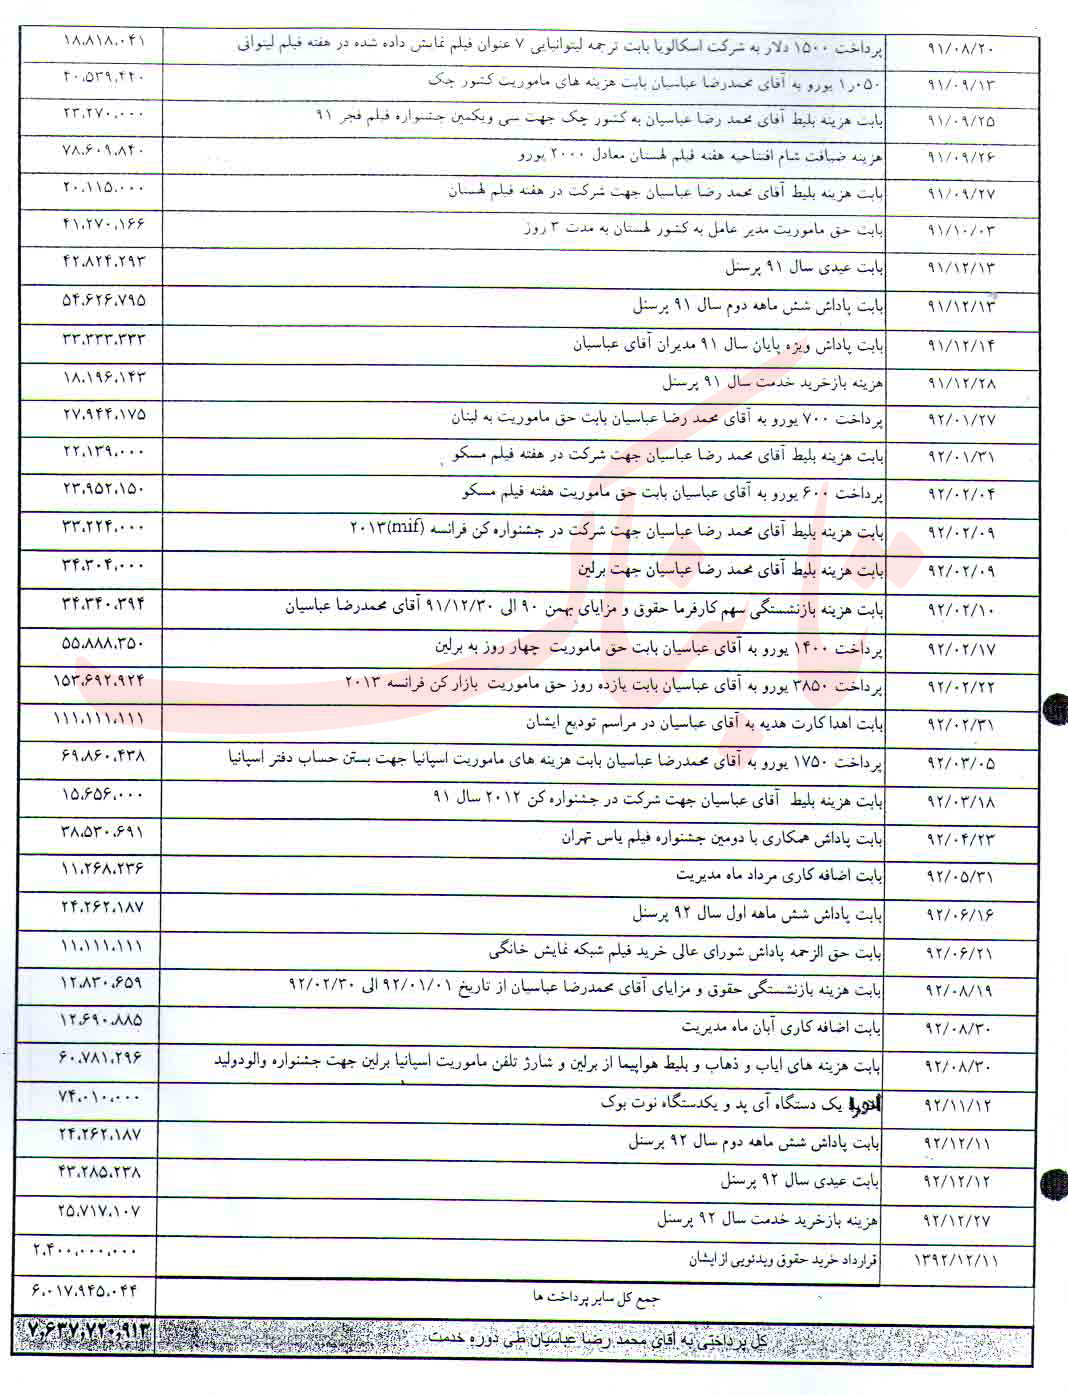 ۹۱/۰۸/۲۰ پرداخت ۱۵۰۰ دلار به شرکت اسکالویا بابت ترجمه لیتوانیایی ۷ عنوان فیلم نمایش داده شده در هفته فیلم لیتوانی ۱۸،۸۱۸،۰۴۱
۹۱/۰۹/۱۳ ۱٫۰۵۰ یورو به آقای محمدرضا عباسیان بابت هزینه های ماموریت کشور چک ۲۰،۵۳۹،۴۲۰
۹۱/۰۹/۲۵ بابت هزینه بلیط آقای محمد رضا عباسیان به کشور چک جهت سی ویکمین جشنواره فیلم فجر ۹۱ ۲۳،۲۷۰،۰۰۰
۹۱/۰۹/۲۶ هزینه ضیافت شام افتتاحیه هفته فیلم لهستان معادل ۲۰۰۰ یورو ۷۸،۶۰۹،۸۴۰
۹۱/۰۹/۲۷ بابت هزینه بلیط آقای محمد رضا عباسیان جهت شرکت در هفته فیلم لهستان ۲۰،۱۱۵،۰۰۰
۹۱/۱۰/۰۳ بابت حق ماموریت مدیر عامل به کشور لهستان به مدت ۳ روز ۴۱،۲۷۰،۱۶۶
۹۱/۱۲/۱۳ بابت عیدی سال ۹۱ پرسنل ۴۲،۸۲۴،۲۹۳
۹۱/۱۲/۱۳ بابت پاداش شش ماهه دوم سال ۹۱ پرسنل ۵۴،۶۲۶،۷۹۵
۹۱/۱۲/۱۴ بابت پاداش ویژه پایان سال ۹۱ مدیران آقای عباسیان ۳۳،۳۳۳،۳۳۳
۹۱/۱۲/۲۸ هزینه بازخرید خدمت سال ۹۱ پرسنل ۱۸،۱۹۶،۱۴۳
۹۲/۰۱/۲۷ پرداخت ۷۰۰ یورو به آقای محمد رضا عباسیان بابت حق ماموریت به لبنان ۲۷،۹۴۴،۱۷۵
۹۲/۰۱/۳۱ بابت هزینه بلیط آقای محمد رضا عباسیان جهت شرکت در هفته فیلم مسکو ۲۲،۱۳۹،۰۰۰
۹۲/۰۲/۰۴ پرداخت ۶۰۰ یورو به آقای عباسیان بابت حق ماموریت هفته فیلم مسکو ۲۳،۹۵۲،۱۵۰
۹۲/۰۲/۰۹ بابت هزینه بلیط آقای محمد رضا عباسیان جهت شرکت در جشنواره کن فرانسه (mif)۲۰۱۳ ۳۳،۲۲۴،۰۰۰
۹۲/۰۲/۰۹ بابت هزینه بلیط آقای محمد رضا عباسیان جهت برلین ۳۴،۳۰۴،۰۰۰
۹۲/۰۲/۱۰ بابت هزینه بازنشستگی سهم کارفرما حقوق و مزایای بهمن ۹۰ الی ۹۱/۱۲/۳۰ آقای محمدرضا عباسیان ۳۴،۳۴۰،۳۹۴
۹۲/۰۲/۱۷ پرداخت ۱۴۰۰ یورو به آقای عباسیان بابت حق ماموریت چهار روز به برلین ۵۵،۸۸۸،۳۵۰
۹۲/۰۲/۲۲ پرداخت ۳۸۵۰ یورو به آقای عباسیان بابت یازده روز حق ماموریت بازار کن فرانسه ۲۰۱۳ ۱۵۳،۶۹۲،۹۲۴
۹۲/۰۲/۳۱ بابت اهدا کارت هدیه به آقای عباسیان در مراسم تودیع ایشان ۱۱۱،۱۱۱،۱۱۱
۹۲/۰۳/۰۵ پرداخت ۱۷۵۰ یورو به آقای محمدرضا عباسیان بابت هزینه های ماموریت اسپانیا جهت بستن حساب دفتر اسپانیا ۶۹،۸۶۰،۴۳۸
۹۲/۰۳/۱۸ بابت هزینه بلیط آقای عباسیان جهت شرکت در جشنواره کن ۲۰۱۲ سال ۹۱ ۱۵،۶۵۶،۰۰۰
۹۲/۰۴/۲۳ بابت پاداش همکاری با دومین جشنواره فیلم یاس تهران ۳۸،۵۳۰،۶۹۱
۹۲/۰۵/۳۱ بابت اضافه کاری مرداد ماه مدیریت ۱۱،۲۶۸،۲۳۶
۹۲/۰۶/۱۶ بابت پاداش شش ماهه اول سال ۹۲ پرسنل ۲۴،۲۶۲،۱۸۷
۹۲/۰۶/۲۱ بابت حق الزحمه پاداش شورای عالی خرید فیلم شبکه نمایش خانگی ۱۱،۱۱۱،۱۱۱
۹۲/۰۸/۱۹ بابت هزینه بازنشستگی حقوق و مزایای آقای محمدرضا عباسیان از تاریخ ۹۲/۰۱/۰۱ الی ۹۲/۰۲/۳۰ ۱۲،۸۳۰،۶۵۹
۹۲/۰۸/۳۰ بابت اضافه کاری آبان ماه مدیریت ۱۲،۶۹۰،۸۸۵
۹۲/۰۸/۳۰ بابت هزینه های ایاب و ذهاب و بلیط هواپیما از برلین و شارژ تلفن ماموریت اسپانیا برلین جهت جشنواره والودولید ۶۰،۷۸۱،۲۹۶
۹۲/۱۱/۱۲ یک دستگاه آی پد و یکدستگاه نوت بوک ۷۴،۰۱۰،۰۰۰
۹۲/۱۲/۱۱ بابت پاداش شش ماهه دوم سال ۹۲ پرسنل ۲۴،۲۶۲،۱۸۷
۹۲/۱۲/۱۲ بابت عیدی سال ۹۲ پرسنل ۴۳،۲۸۵،۲۳۸
۹۲/۱۲/۲۷ هزینه بازخرید خدمت سال ۹۲ پرسنل ۲۵،۷۱۷،۱۰۷
۱۳۹۲/۱۲/۱۱ قرارداد خرید حقوق ویدئویی از ایشان ۲،۴۰۰،۰۰۰،۰۰۰
جمع کل سایر پرداخت ها ۶،۰۱۷،۹۴۵،۰۴۴
کل پرداختی به آقای محمد رضا عباسیان طی دوره خدمت ۷،۶۳۷،۷۲۰،۹۱۳
تابناک